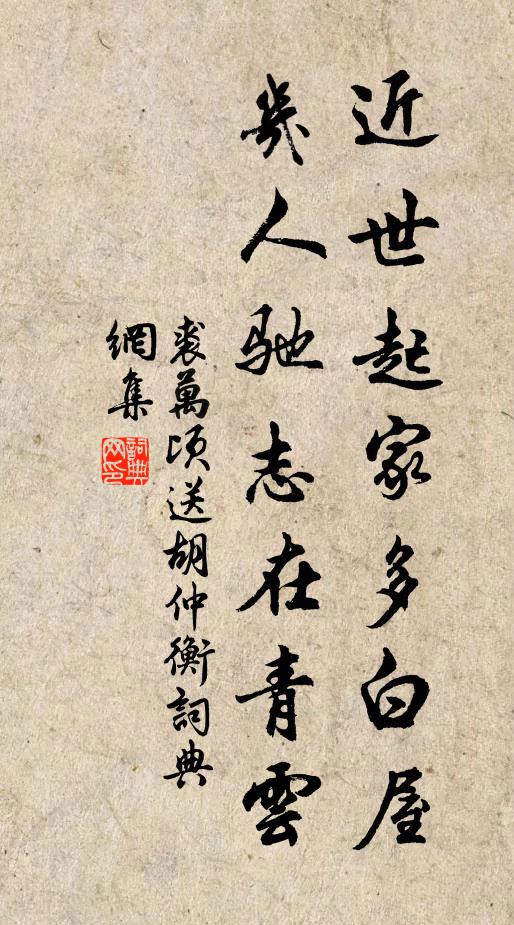 近世起家多白屋
幾人馳志在青雲
裘萬頃送胡仲衡詞典
網集
詞典網印